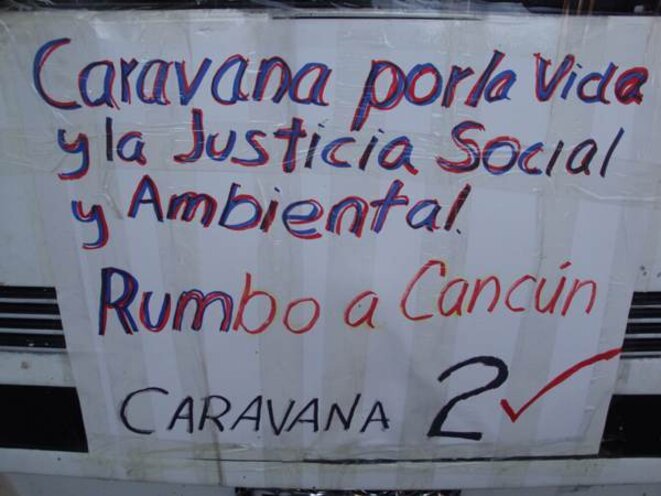 Caravana por la Vida
y la Justicia Social
y Ambiental.
Rumbo a Cancún
CARAVANA 2